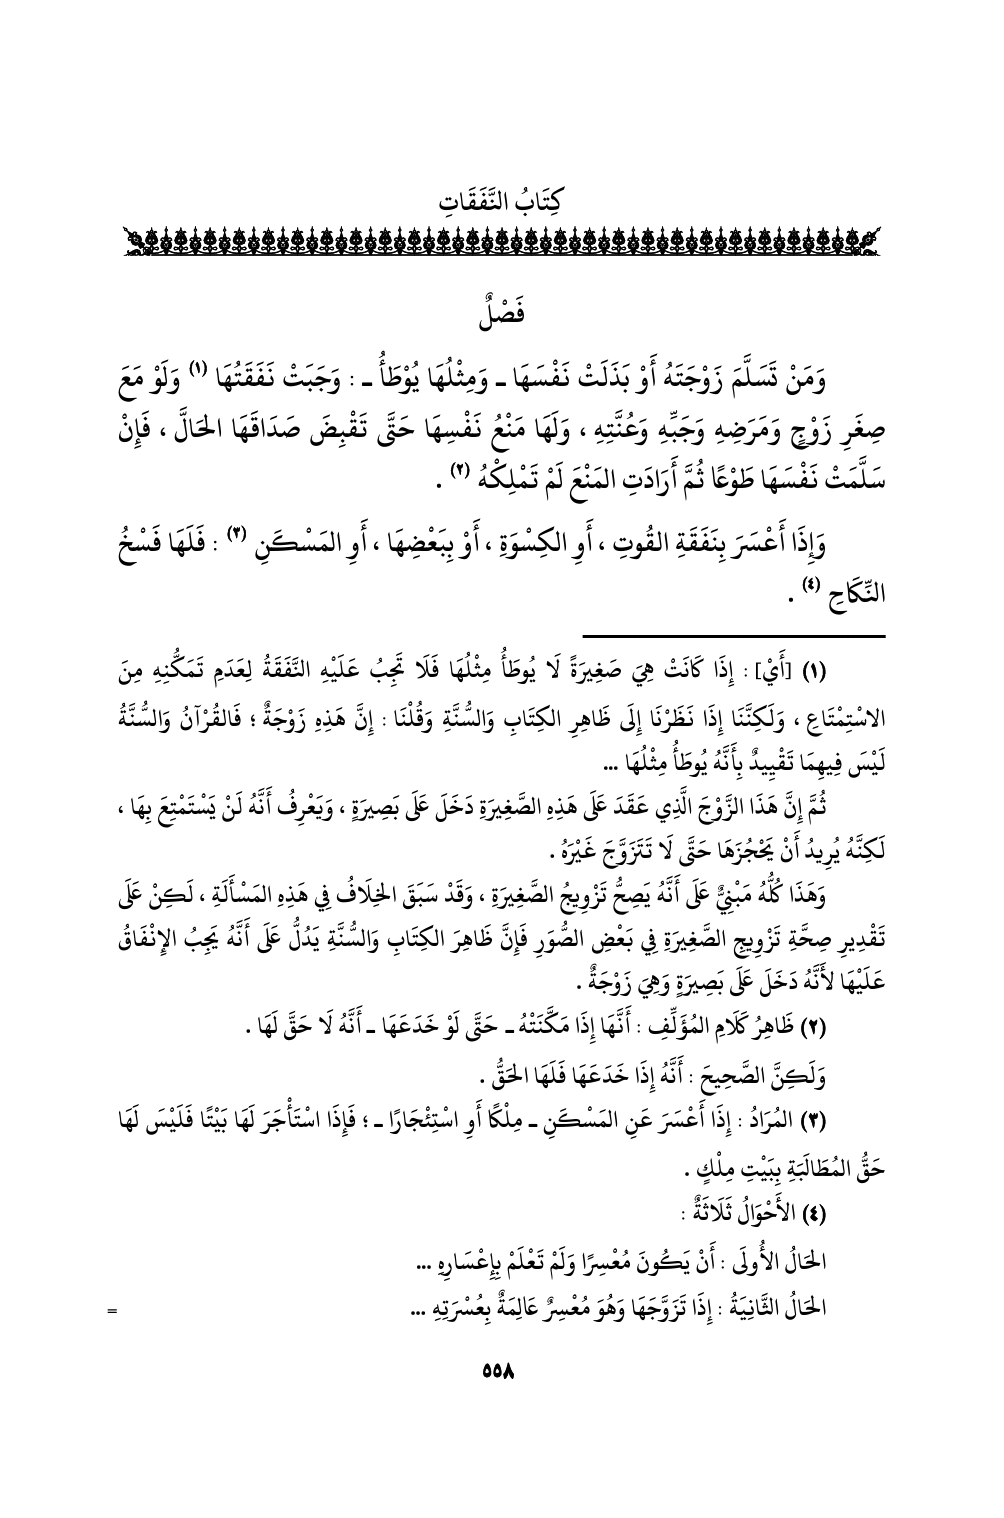 كِتَابُ النَّفَقَاتِ
فَصْلٌ
وَمَنْ تَسَلَّمَ زَوْجَتَهُ أَوْ بَذَلَتْ نَفْسَهَا ـ وَمِثْلُهَا يُوْطَأُ ـ : وَجَبَتْ نَفَقَتُهَا (١) وَلَوْ مَعَ
صِغَرِ زَوْجٍ وَمَرَضِهِ وَجَبِّهِ وَعُنَّتِهِ ، وَلَهَا مَنْعُ نَفْسِهَا حَتَّى تَقْبِضَ صَدَاقَهَا الحَالَّ ، فَإِنْ
سَلَّمَتْ نَفْسَهَا طَوْعًا ثُمَّ أَرَادَتِ المَنْعَ لَمْ تَمْلِكْهُ (٢) .
وَإِذَا أَعْسَرَ بِنَفَقَةِ القُوتِ ، أَوِ الكِسْوَةِ ، أَوْ بِبَعْضِهَا ، أَوِ المَسْكَنِ (٣) : فَلَهَا فَسْخُ
النِّكَاحِ (٤) .
(١) [أَيْ] : إِذَا كَانَتْ هِيَ صَغِيرَةً لَا يُوطَأُ مِثْلُهَا فَلَا تَجِبُ عَلَيْهِ النَّفَقَةُ لِعَدَمِ تَمَكُّنِهِ مِنَ
الاسْتِمْتَاعِ ، وَلَكِنَّنَا إِذَا نَظَرْنَا إِلَى ظَاهِرِ الكِتَابِ وَالسُّنَّةِ وَقُلْنَا : إِنَّ هَذِهِ زَوْجَةٌ ؛ فَالقُرْآنُ وَالسُّنَّةُ
لَيْسَ فِيهِمَا تَقْيِيدٌ بِأَنَّهُ يُوطَأُ مِثْلُهَا ...
ثُمَّ إِنَّ هَذَا الزَّوْجَ الَّذِي عَقَدَ عَلَى هَذِهِ الصَّغِيرَةِ دَخَلَ عَلَى بَصِيرَةٍ ، وَيَعْرِفُ أَنَّهُ لَنْ يَسْتَمْتِعَ بِهَا ،
لَكِنَّهُ يُرِيدُ أَنْ يَحْجُزَهَا حَتَّى لَا تَتَزَوَّجَ غَيْرَهُ .
وَهَذَا كُلُّهُ مَبْنِيٌّ عَلَى أَنَّهُ يَصِحُّ تَزْوِيجُ الصَّغِيرَةِ ، وَقَدْ سَبَقَ الخِلَافُ فِي هَذِهِ المَسْأَلَةِ ، لَكِنْ عَلَى
تَقْدِيرِ صِحَّةِ تَزْوِيجِ الصَّغِيرَةِ فِي بَعْضِ الصُّوَرِ فَإِنَّ ظَاهِرَ الكِتَابِ وَالسُّنَّةِ يَدُلُّ عَلَى أَنَّهُ يَجِبُ الإِنْفَاقُ
عَلَيْهَا لأَنَّهُ دَخَلَ عَلَى بَصِيرَةٍ وَهِيَ زَوْجَةٌ .
(٢) ظَاهِرُ كَلَامِ المُؤَلِّفِ : أَنَّهَا إِذَا مَكَّنَتْهُ ـ حَتَّى لَوْ خَدَعَهَا ـ أَنَّهُ لَا حَقَّ لَهَا .
وَلَكِنَّ الصَّحِيحَ : أَنَّهُ إِذَا خَدَعَهَا فَلَهَا الحَقُّ .
(٣) المُرَادُ : إِذَا أَعْسَرَ عَنِ المَسْكَنِ ـ مِلْكًا أَوِ اسْتِئْجَارًا ـ ؛ فَإِذَا اسْتَأْجَرَ لَهَا بَيْتًا فَلَيْسَ لَهَا
حَقُّ المُطَالَبَةِ بِبَيْتِ مِلْكٍ .
(٤) الأَحْوَالُ ثَلَاثَةٌ :
الحَالُ الأُولَى : أَنْ يَكُونَ مُعْسِرًا وَلَمْ تَعْلَمْ بِإِعْسَارِهِ ...
الحَالُ الثَّانِيَةُ : إِذَا تَزَوَّجَهَا وَهُوَ مُعْسِرٌ عَالِمَةٌ بِعُسْرَتِهِ ... =
٥٥٨